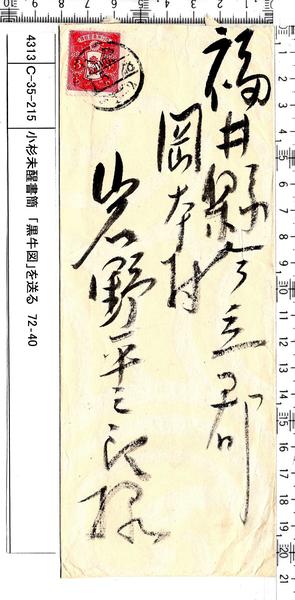 福井縣今立郡
岡本村
岩野平三郎様
4313 C-35-215 小杉未醒書簡 「黒牛図」を送る 72-40